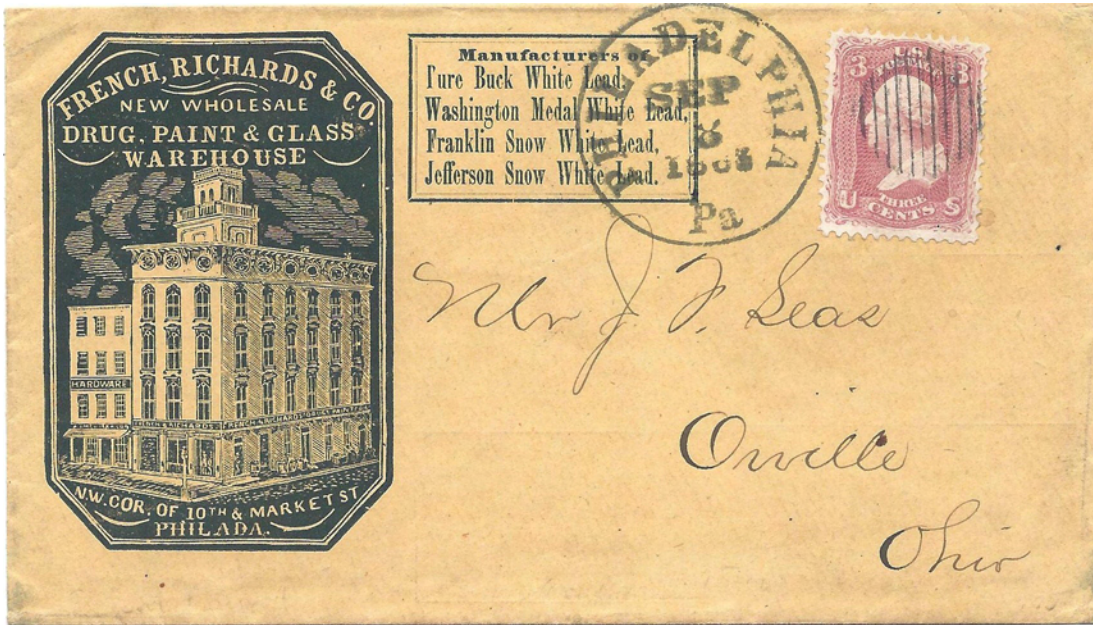 FRENCH, RICHARDS & CO
NEW WHOLESALE
DRUG, PAINT & GLASS
WAREHOUSE
HARDWARE
FRENCH & RICHARDS
FRENCH & RICHARDS DRUGS PAINT
N.W. COR. OF 10TH & MARKET ST
PHILADA.
Manufacturers of
Pure Buck White Lead,
Washington Medal White Lead,
Franklin Snow White Lead,
Jefferson Snow White Lead.
PHILADELPHIA
SEP
8
1863
Pa
3 U.S. 3
POSTAGE
U THREE S
CENTS
Mr J. F. Seas
Orville
Ohio